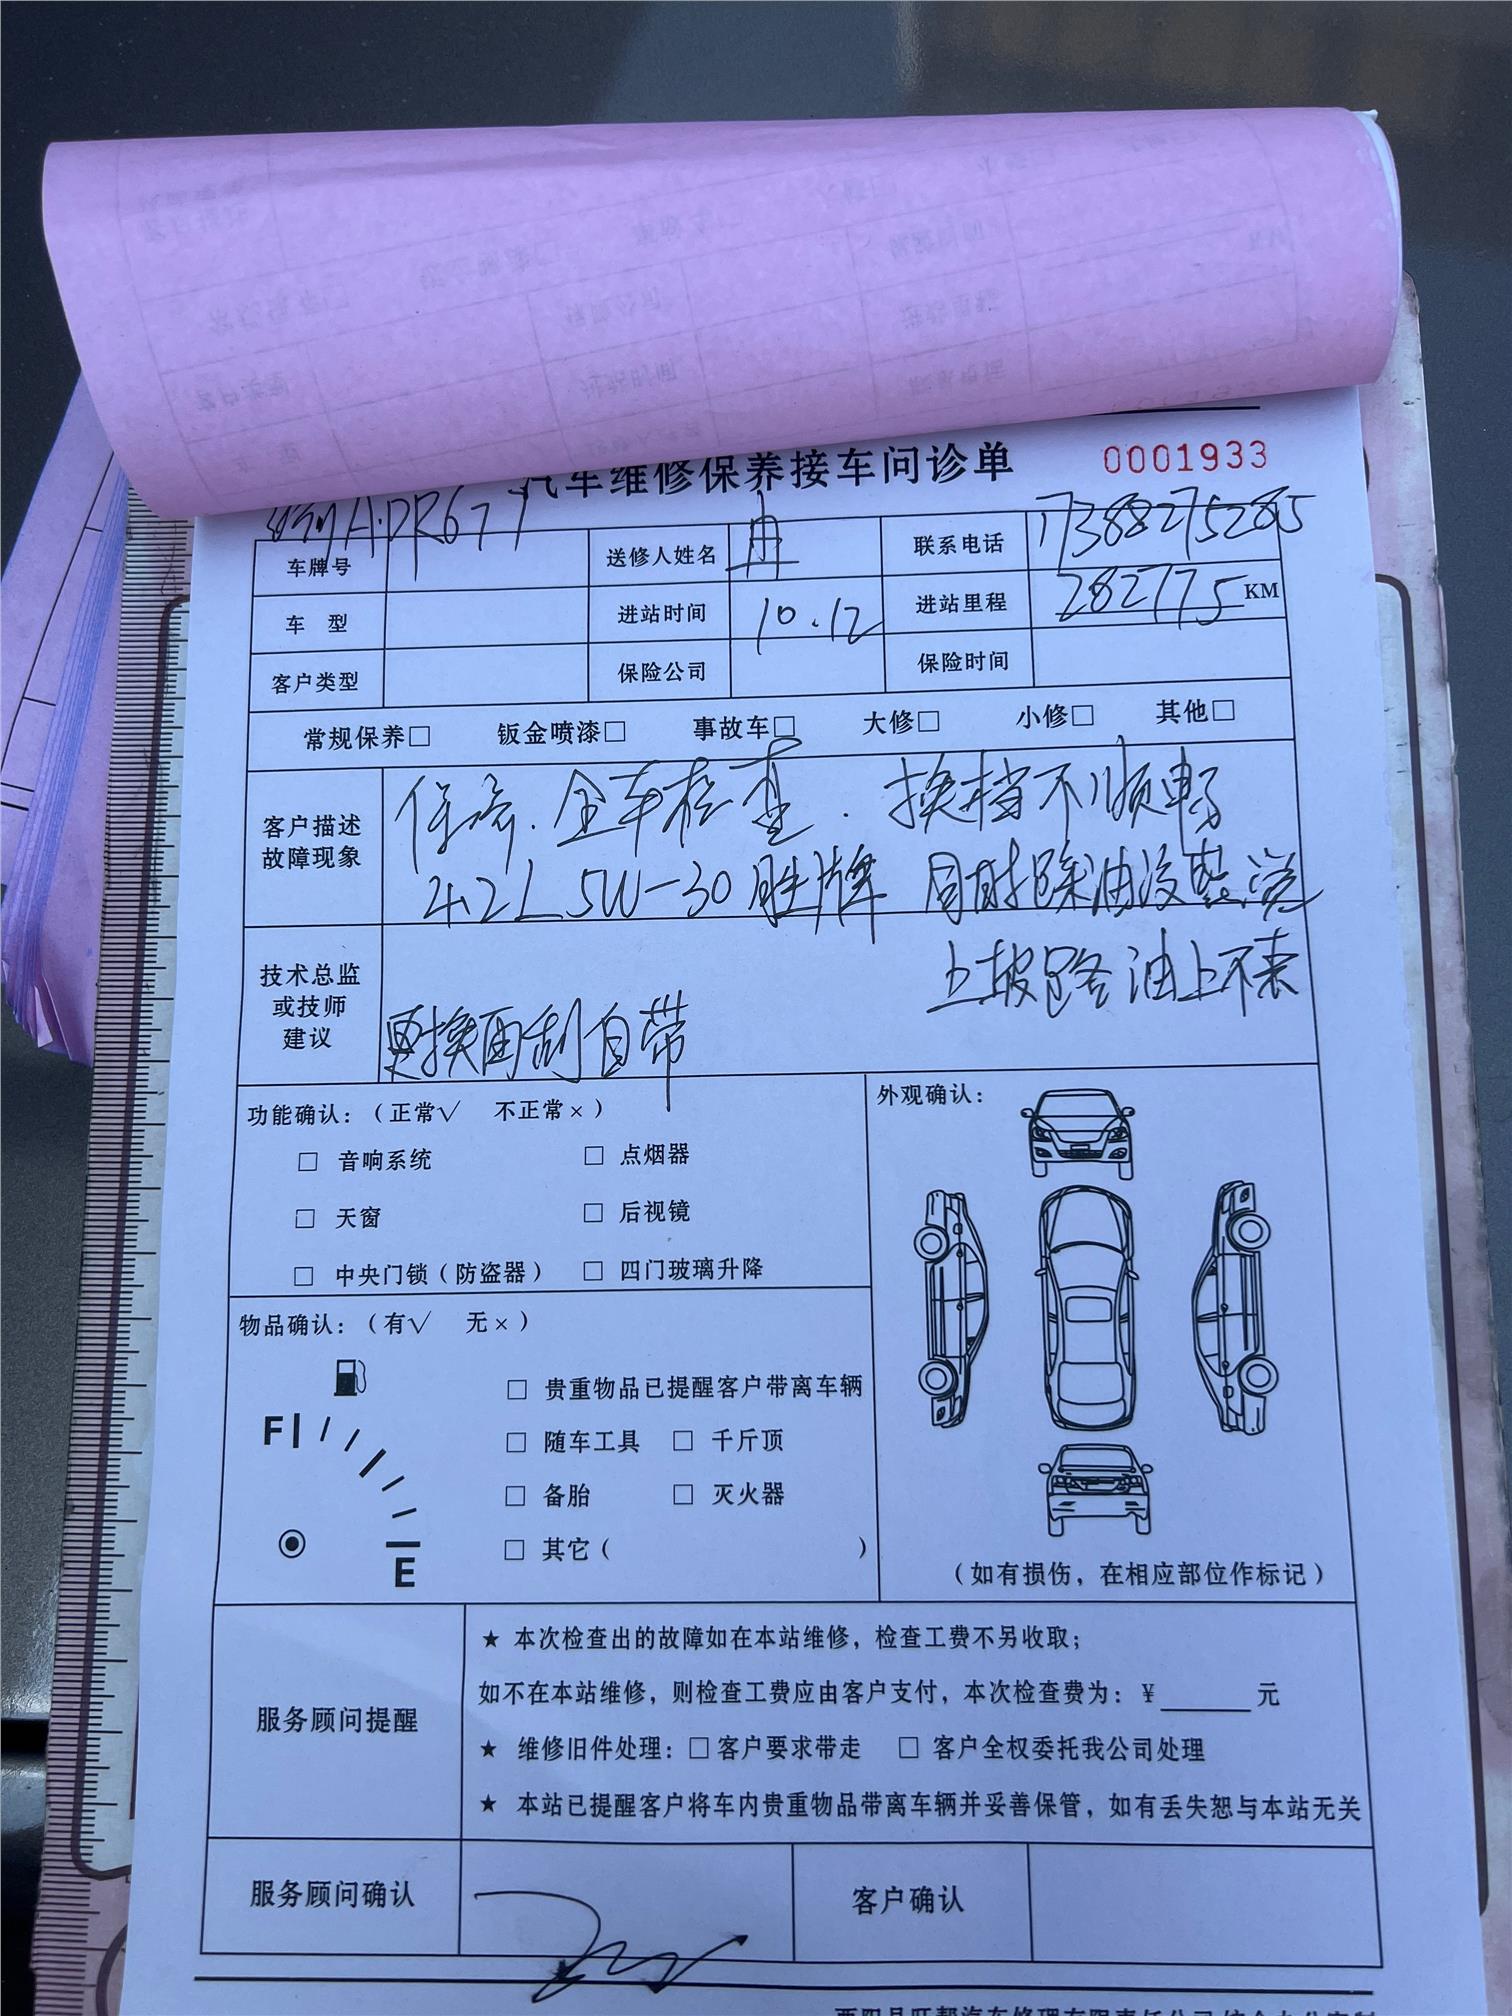 汽车维修保养接车问诊单 0001933
渝A·DR677
车牌号 送修人姓名 冉 联系电话 17388275285
车 型 进站时间 10.12 进站里程 282775 KM
客户类型 保险公司 保险时间
常规保养□ 钣金喷漆□ 事故车□ 大修□ 小修□ 其他□
客户描述
故障现象
保养.全车检查.换挡不顺畅
4.2L 5W-30 胜牌
上坡路油上不来
技术总监
或技师
建议
更换雨刮自带
功能确认:(正常√ 不正常×)
□ 音响系统 □ 点烟器
□ 天窗 □ 后视镜
□ 中央门锁(防盗器) □ 四门玻璃升降
外观确认:
物品确认:(有√ 无×)
□ 贵重物品已提醒客户带离车辆
F
□ 随车工具 □ 千斤顶
□ 备胎 □ 灭火器
□ 其它( )
E
(如有损伤,在相应部位作标记)
服务顾问提醒
★ 本次检查出的故障如在本站维修,检查工费不另收取;
如不在本站维修,则检查工费应由客户支付,本次检查费为:¥______元
★ 维修旧件处理:□客户要求带走 □ 客户全权委托我公司处理
★ 本站已提醒客户将车内贵重物品带离车辆并妥善保管,如有丢失恕与本站无关
服务顾问确认 客户确认